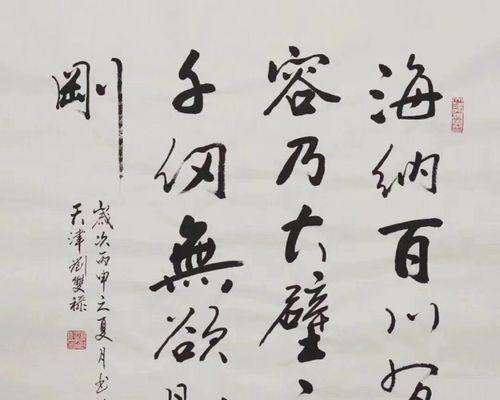 海納百川有
容乃大壁
千仞無欲
剛
歲次丙申之夏月书
天津劉雙禄